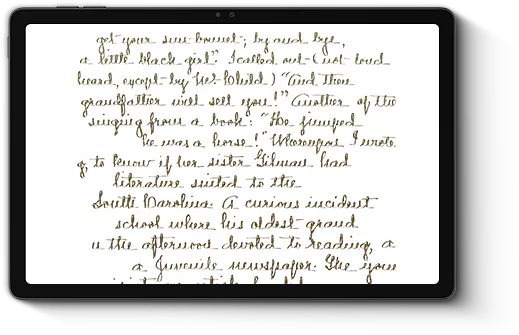 get your sun-bonnet; by and bye,
a little black girl". I called out - (not loud
heard, except by Mrs. Child) "And then
grandfather will sell you!" Another of the
singing from a book: "He jumped
he was a horse!" Whereupon I wrote
g, to know if her sister Gilman had
literature suited to the
South Carolina. A curious incident
school where his oldest grand
n the afternoon devoted to reading, a
a Juvenile newspaper. The youn